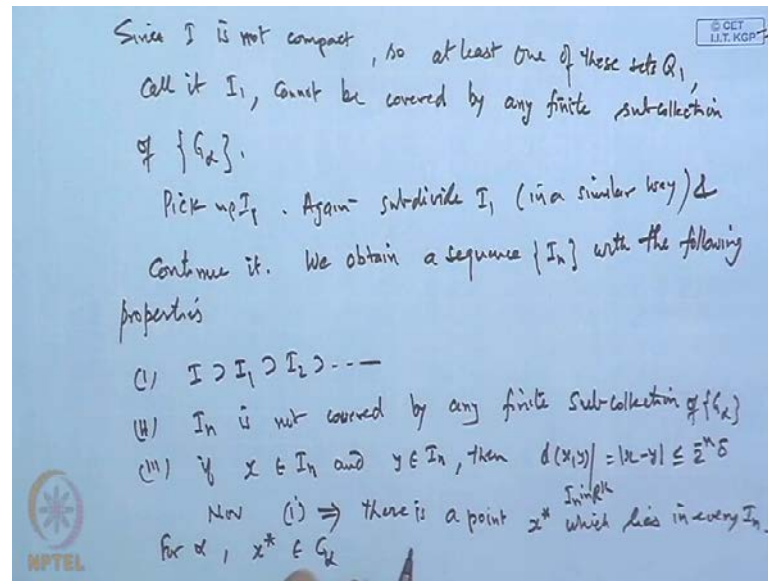 © CET
I.I.T. KGP
Since I is not compact, so at least one of these sets Q1,
call it I1, cannot be covered by any finite sub-collection
of {Gα}.
Pick up I1. Again subdivide I1 (in a similar way) &
Continue it. We obtain a sequence {In} with the following
properties
(i) I ⊃ I1 ⊃ I2 ⊃ ·----
(ii) In is not covered by any finite sub-collection of {Gα}
(iii) if x ∈ In and y ∈ In, then d(x,y) = |x-y| ≤ 2^-n δ
In in R^k
Now (i) ⇒ there is a point x* which lies in every In.
For α, x* ∈ Gα
NPTEL